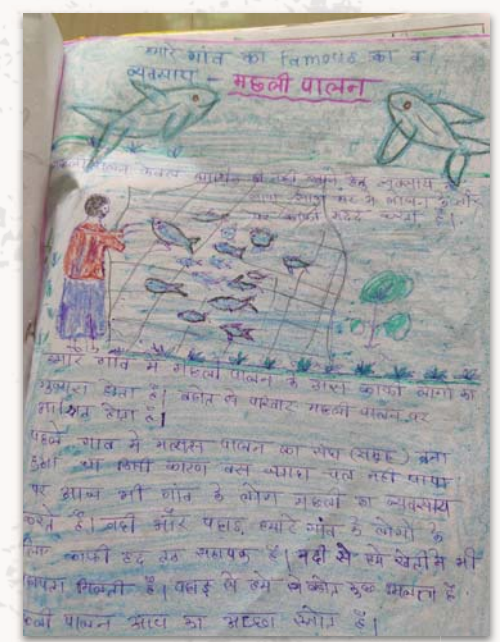 हमारे गांव का Famous का व
व्यवसाय - मछली पालन
मछली पालन केवल
व्यवसाय
हमारे गांव में मछली पालन के द्वारा काफी लोगों का
गुजारा होता है। बहोत से परिवार मछली पालन पर
आश्रित होता है।
पहले गांव में मत्यस पालन का संघ (समूह) बना
हुआ था किसी कारण वस ज्यादा चल नहीं पाया।
पर आज भी गांव के लोग मछली का व्यवसाय
करते है। नदी और पहाड़ हमारे गांव के लोगों के
लिए काफी हद तक सहायक है। नदी से हमे खेती में भी
सहायता मिलती है। पहाड़ से हमे बहोत कुछ मिलता है।
मछली पालन आय का अच्छा स्त्रोत है।